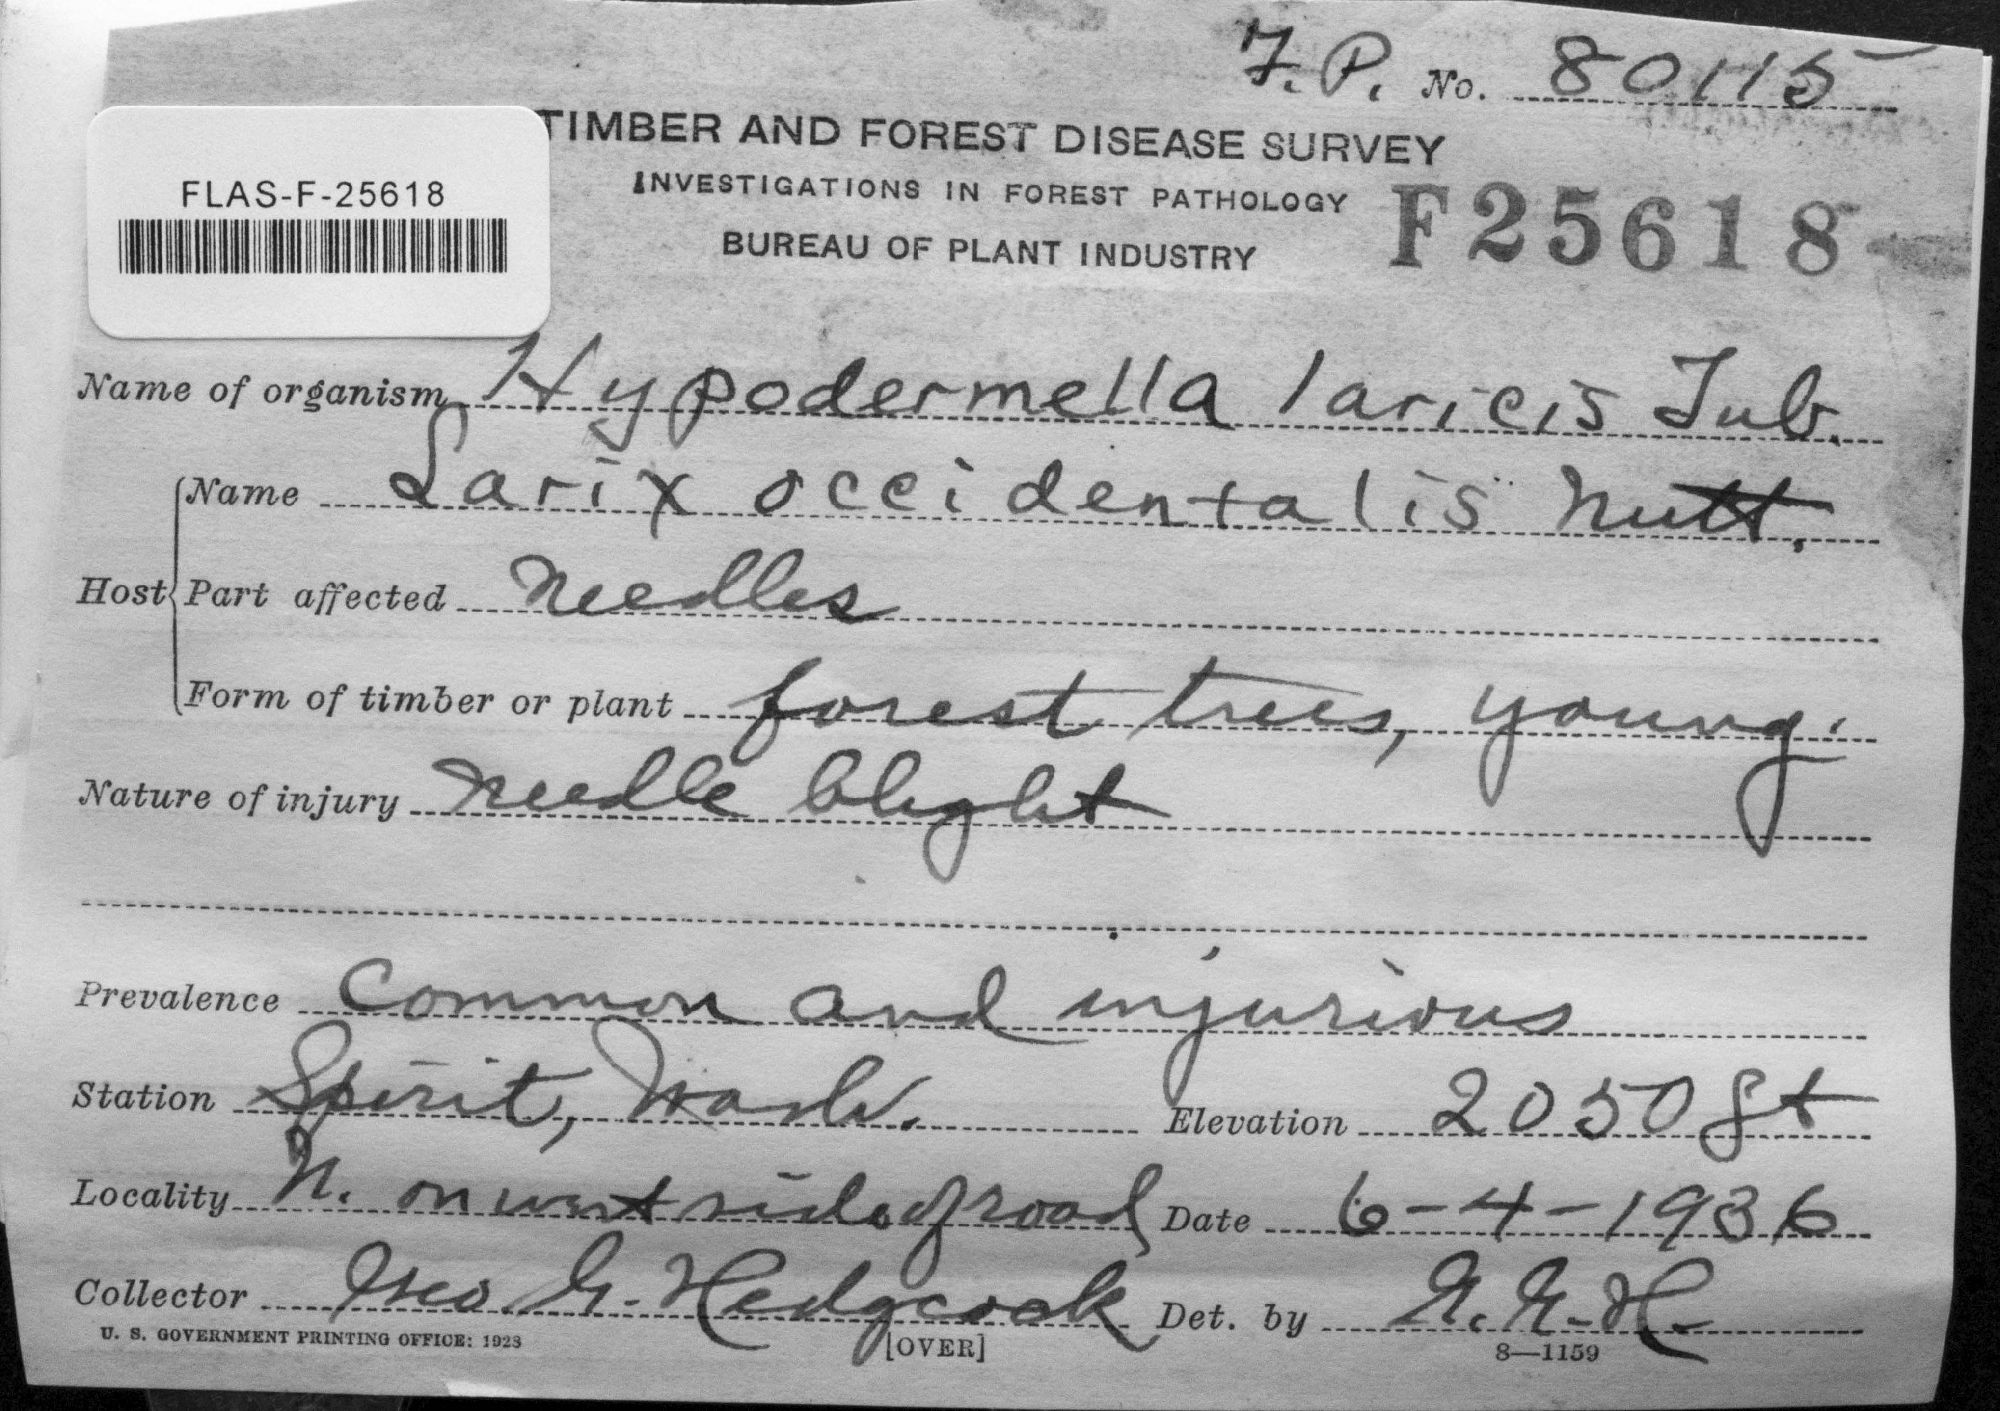 F. P. No. 80115
FLAS-F-25618
TIMBER AND FOREST DISEASE SURVEY
INVESTIGATIONS IN FOREST PATHOLOGY
BUREAU OF PLANT INDUSTRY
F25618
Name of organism Hypodermella laricis Tub.
Host
Name Larix occidentalis Nutt.
Part affected Needles
Form of timber or plant forest trees, young.
Nature of injury needle blight
Prevalence Common and injurious
Station Spirit, Wash. Elevation 2050 ft
Locality N. on west side of road Date 6-4-1936
Collector Geo. G. Hedgcock Det. by G. G. H.
U. S. GOVERNMENT PRINTING OFFICE: 1923 [OVER] 8—1159